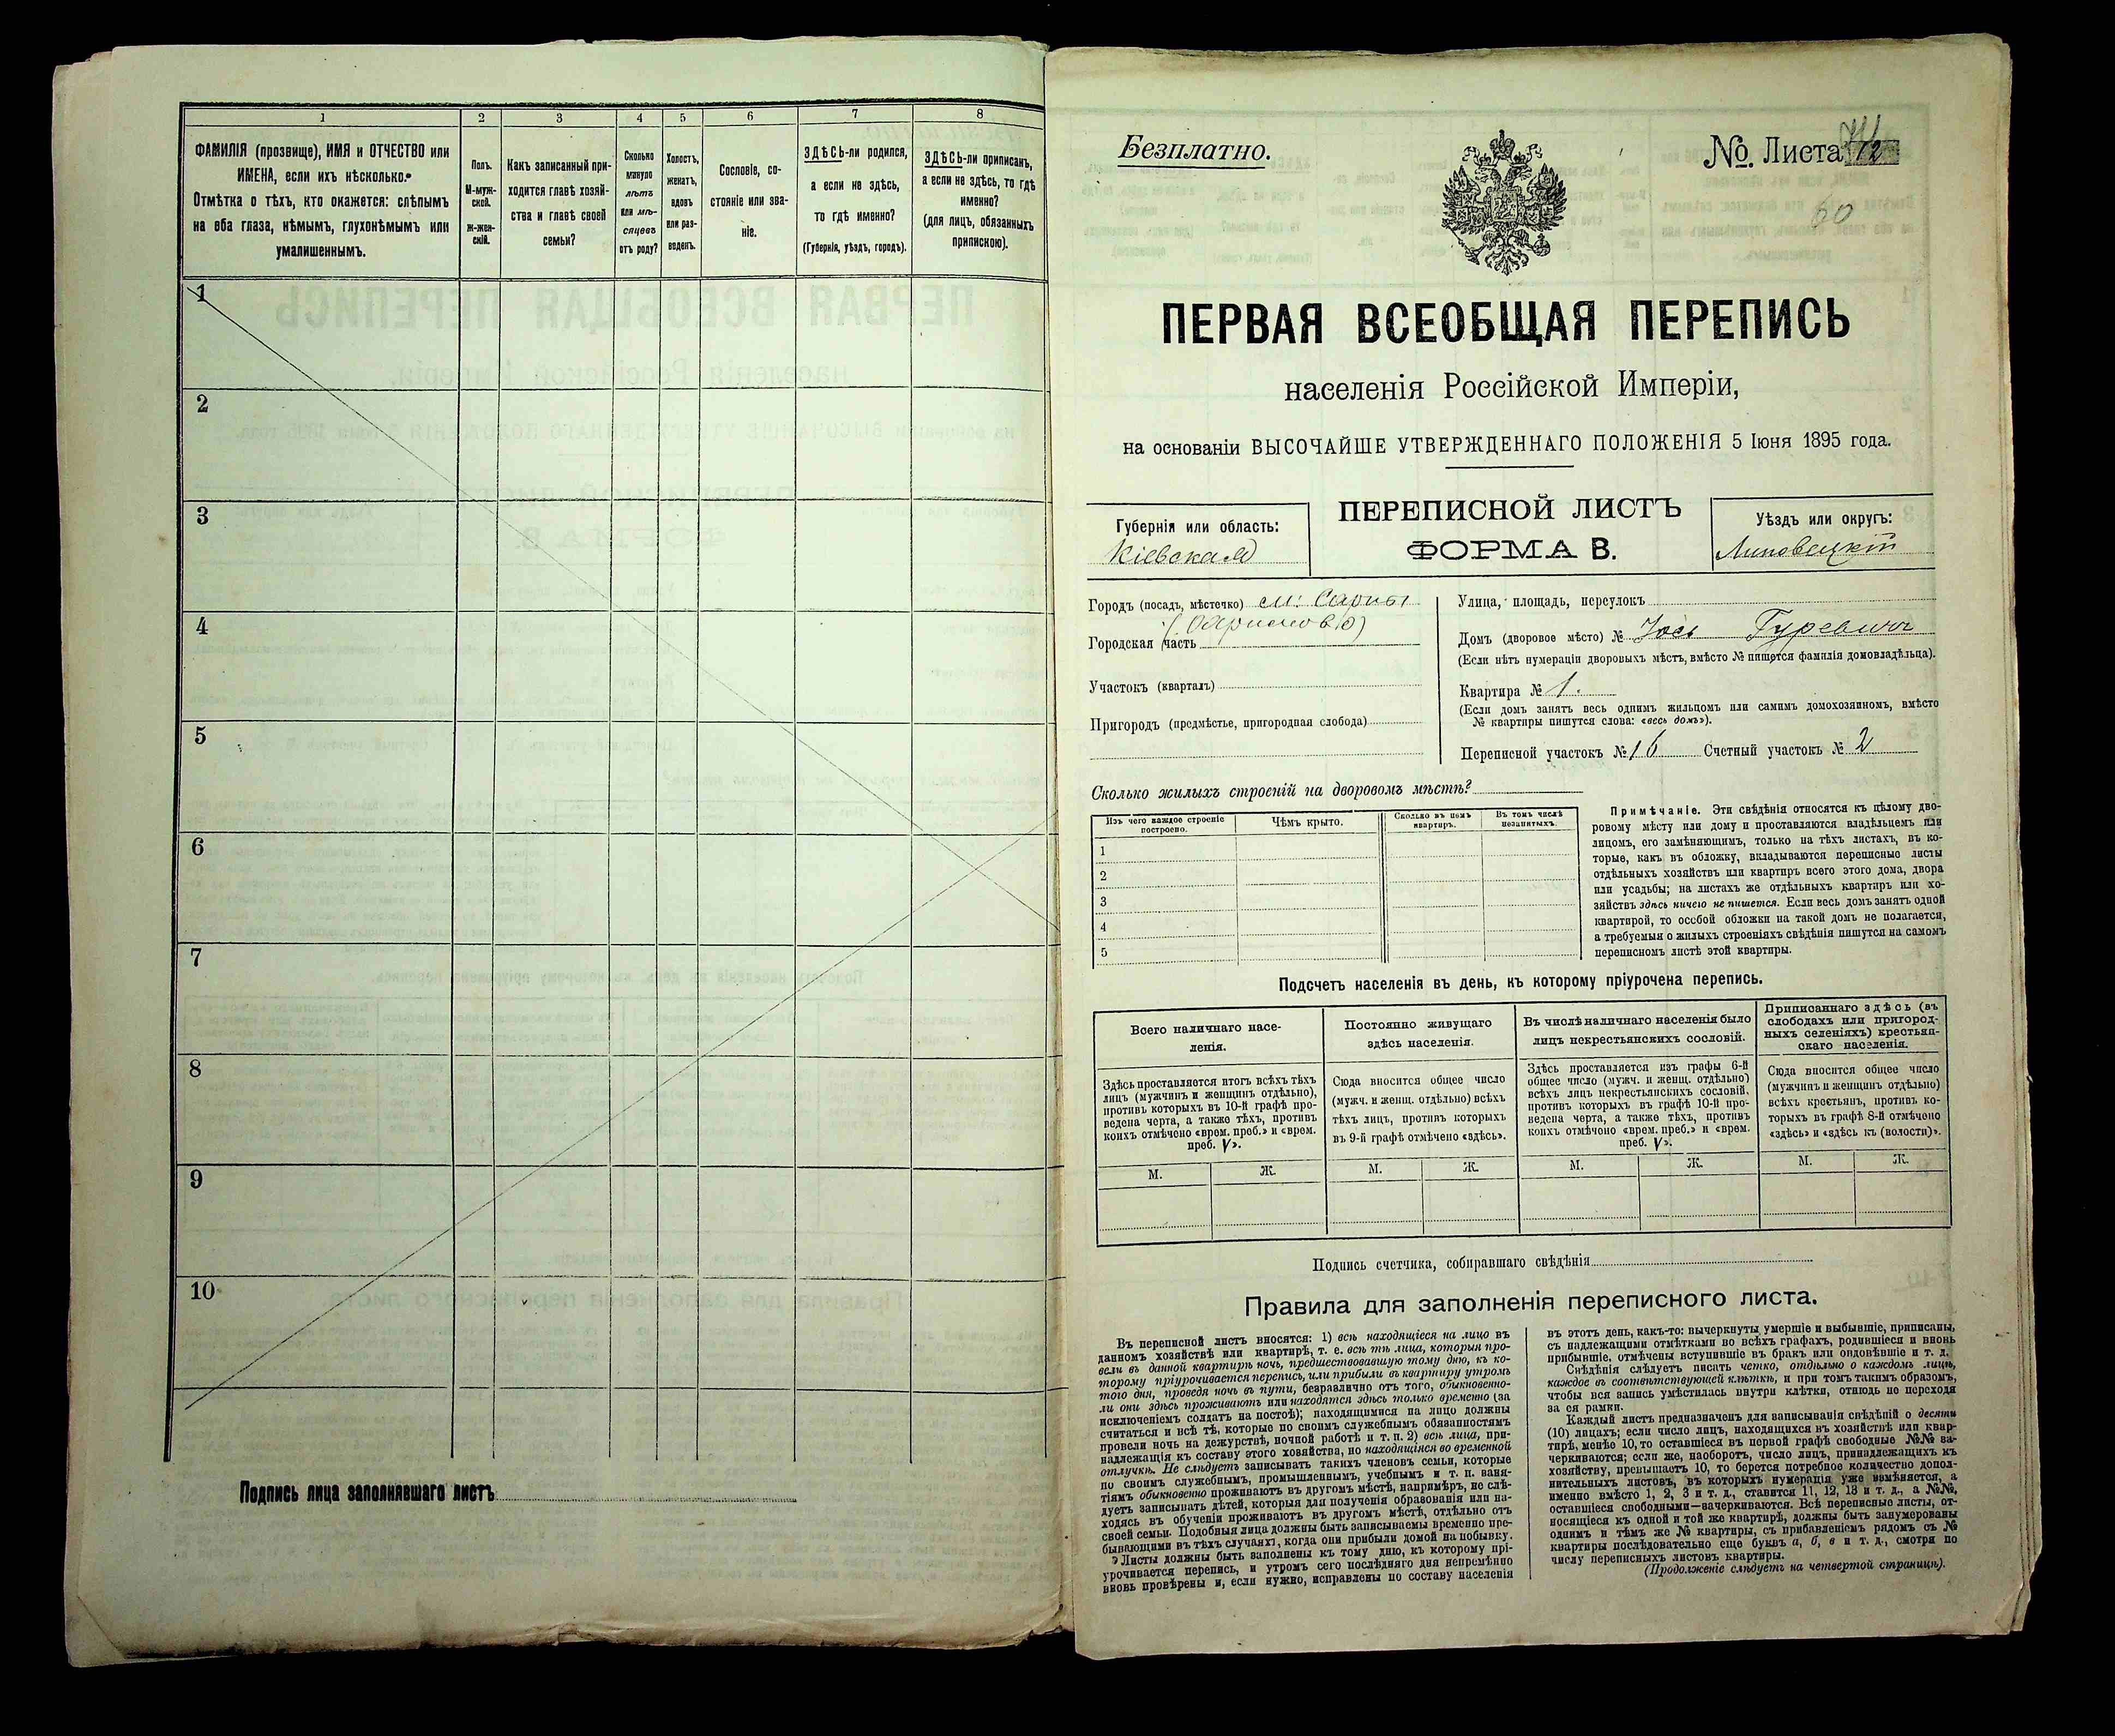 1 2 3 4 5 6 7 8
ФАМИЛІЯ (прозвище), ИМЯ и ОТЧЕСТВО или
ИМЕНА, если ихъ нѣсколько.
Отмѣтка о тѣхъ, кто окажется: слѣпымъ
на оба глаза, нѣмымъ, глухонѣмымъ или
умалишеннымъ.
Полъ.
М-муж-
ской.
Ж-жен-
скій.
Какъ записанный при-
ходится главѣ хозяй-
ства и главѣ своей
семьи?
Сколько
минуло
лѣтъ
или мѣ-
сяцевъ
отъ роду?
Холостъ,
женатъ,
вдовъ
или раз-
веденъ.
Сословіе, со-
стояніе или зва-
ніе.
ЗДѢСЬ-ли родился,
а если не здѣсь,
то гдѣ именно?
(Губернія, уѣздъ, городъ).
ЗДѢСЬ-ли приписанъ,
а если не здѣсь, то гдѣ
именно?
(для лицъ, обязанныхъ
припискою).
1
2
3
4
5
6
7
8
9
10
Подпись лица заполнявшаго листъ
Безплатно.
№. Листа
60
ПЕРВАЯ ВСЕОБЩАЯ ПЕРЕПИСЬ
населенія Россійской Имперіи,
на основаніи ВЫСОЧАЙШЕ УТВЕРЖДЕННАГО ПОЛОЖЕНІЯ 5 Іюня 1895 года.
Губернія или область:
Кіевская
ПЕРЕПИСНОЙ ЛИСТЪ
ФОРМА В.
Уѣздъ или округъ:
Липовецкій
Городъ (посадъ, мѣстечко) м: Сарны
Городская часть
Участокъ (кварталъ)
Пригородъ (предмѣстье, пригородная слобода)
Улица, площадь, переулокъ
Домъ (дворовое мѣсто) № Іось Гуревичъ
(Если нѣтъ нумераціи дворовыхъ мѣстъ, вмѣсто № пишется фамилія домовладѣльца).
Квартира № 1.
(Если домъ занятъ весь однимъ жильцомъ или самимъ домохозяиномъ, вмѣсто
№ квартиры пишутся слова: «весь домъ»).
Переписной участокъ № 16 Счетный участокъ № 2
Сколько жилыхъ строеній на дворовомъ мѣстѣ?
Изъ чего каждое строеніе
построено.
Чѣмъ крыто.
Сколько въ немъ
квартиръ.
Въ томъ числѣ
незанятыхъ.
1
2
3
4
5
Примѣчаніе. Эти свѣдѣнія относятся къ цѣлому дво-
ровому мѣсту или дому и проставляются владѣльцемъ или
лицомъ, его замѣняющимъ, только на тѣхъ листахъ, въ ко-
торые, какъ въ обложку, вкладываются переписные листы
отдѣльныхъ хозяйствъ или квартиръ всего этого дома, двора
или усадьбы; на листахъ же отдѣльныхъ квартиръ или хо-
зяйствъ здѣсь ничего не пишется. Если весь домъ занятъ одной
квартирой, то особой обложки на такой домъ не полагается,
а требуемыя о жилыхъ строеніяхъ свѣдѣнія пишутся на самомъ
переписномъ листѣ этой квартиры.
Подсчетъ населенія въ день, къ которому пріурочена перепись.
Всего наличнаго насе-
ленія.
Постоянно живущаго
здѣсь населенія.
Въ числѣ наличнаго населенія было
лицъ некрестьянскихъ сословій.
Приписаннаго здѣсь (въ
слободахъ или пригород-
ныхъ селеніяхъ) крестьян-
скаго населенія.
Здѣсь проставляется итогъ всѣхъ тѣхъ
лицъ (мужчинъ и женщинъ отдѣльно),
противъ которыхъ въ 10-й графѣ про-
ведена черта, а также тѣхъ, противъ
коихъ отмѣчено «врем. преб.» и «врем.
преб. V».
Сюда вносится общее число
(мужч. и женщ. отдѣльно) всѣхъ
тѣхъ лицъ, противъ которыхъ
въ 9-й графѣ отмѣчено «здѣсь».
Здѣсь проставляется изъ графы 6-й
общее число (мужч. и женщ. отдѣльно)
всѣхъ лицъ некрестьянскихъ сословій,
противъ которыхъ въ графѣ 10-й про-
ведена черта, а также тѣхъ, противъ
коихъ отмѣчено «врем. преб.» и «врем.
преб. V».
Сюда вносится общее число
(мужчинъ и женщинъ отдѣльно)
всѣхъ крестьянъ, противъ ко-
торыхъ въ графѣ 8-й отмѣчено
«здѣсь» и «здѣсь къ (волости)».
М. Ж. М. Ж. М. Ж. М. Ж.
Подпись счетчика, собиравшаго свѣдѣнія
Правила для заполненія переписного листа.
Въ переписной листъ вносятся: 1) всѣ находящіеся на лицо въ
данномъ хозяйствѣ или квартирѣ, т. е. всѣ тѣ лица, которыя про-
вели въ данной квартирѣ ночь, предшествовавшую тому дню, къ ко-
торому пріурочивается перепись, или прибыли въ квартиру утромъ
того дня, проведя ночь въ пути, безразлично отъ того, обыкновенно-
ли они здѣсь проживаютъ или находятся здѣсь только временно (за
исключеніемъ солдатъ на постоѣ); находящимися на лицо должны
считаться и всѣ тѣ, которые по своимъ служебнымъ обязанностямъ
провели ночь на дежурствѣ, ночной работѣ и т. п. 2) всѣ лица, при-
надлежащія къ составу этого хозяйства, но находящіяся во временной
отлучкѣ. Не слѣдуетъ записывать такихъ членовъ семьи, которые
по своимъ служебнымъ, промышленнымъ, учебнымъ и т. п. заня-
тіямъ обыкновенно проживаютъ въ другомъ мѣстѣ, напримѣръ, не слѣ-
дуетъ записывать дѣтей, которыя для полученія образованія или на-
ходясь въ обученіи проживаютъ въ другомъ мѣстѣ, отдѣльно отъ
своей семьи. Подобныя лица должны быть записываемы временно пре-
бывающими въ тѣхъ случаяхъ, когда они прибыли домой на побывку.
Листы должны быть заполнены къ тому дню, къ которому прі-
урочивается перепись, и утромъ сего послѣдняго дня непремѣнно
вновь провѣрены и, если нужно, исправлены по составу населенія
въ этотъ день, какъ-то: вычеркнуты умершіе и выбывшіе, приписаны,
съ надлежащими отмѣтками во всѣхъ графахъ, родившіеся и вновь
прибывшіе, отмѣчены вступившіе въ бракъ или овдовѣвшіе и т. д.
Свѣдѣнія слѣдуетъ писать четко, отдѣльно о каждомъ лицѣ,
каждое въ соотвѣтствующей клѣткѣ, и при томъ такимъ образомъ,
чтобы вся запись умѣстилась внутри клѣтки, отнюдь не переходя
за ея рамки.
Каждый листъ предназначенъ для записыванія свѣдѣній о десяти
(10) лицахъ; если число лицъ, находящихся въ хозяйствѣ или квар-
тирѣ, менѣе 10, то оставшіеся въ первой графѣ свободные №№ за-
черкиваются; если же, наоборотъ, число лицъ, принадлежащихъ къ
хозяйству, превышаетъ 10, то берется потребное количество допол-
нительныхъ листовъ, въ которыхъ нумерація уже измѣняется, а
именно вмѣсто 1, 2, 3 и т. д., ставится 11, 12, 13 и т. д., а №№,
оставшіеся свободными—зачеркиваются. Всѣ переписные листы, от-
носящіеся къ одной и той же квартирѣ, должны быть занумерованы
однимъ и тѣмъ же № квартиры, съ прибавленіемъ рядомъ съ №
квартиры послѣдовательно еще буквъ а, б, в и т. д., смотря по
числу переписныхъ листовъ квартиры.
(Продолженіе слѣдуетъ на четвертой страницѣ).